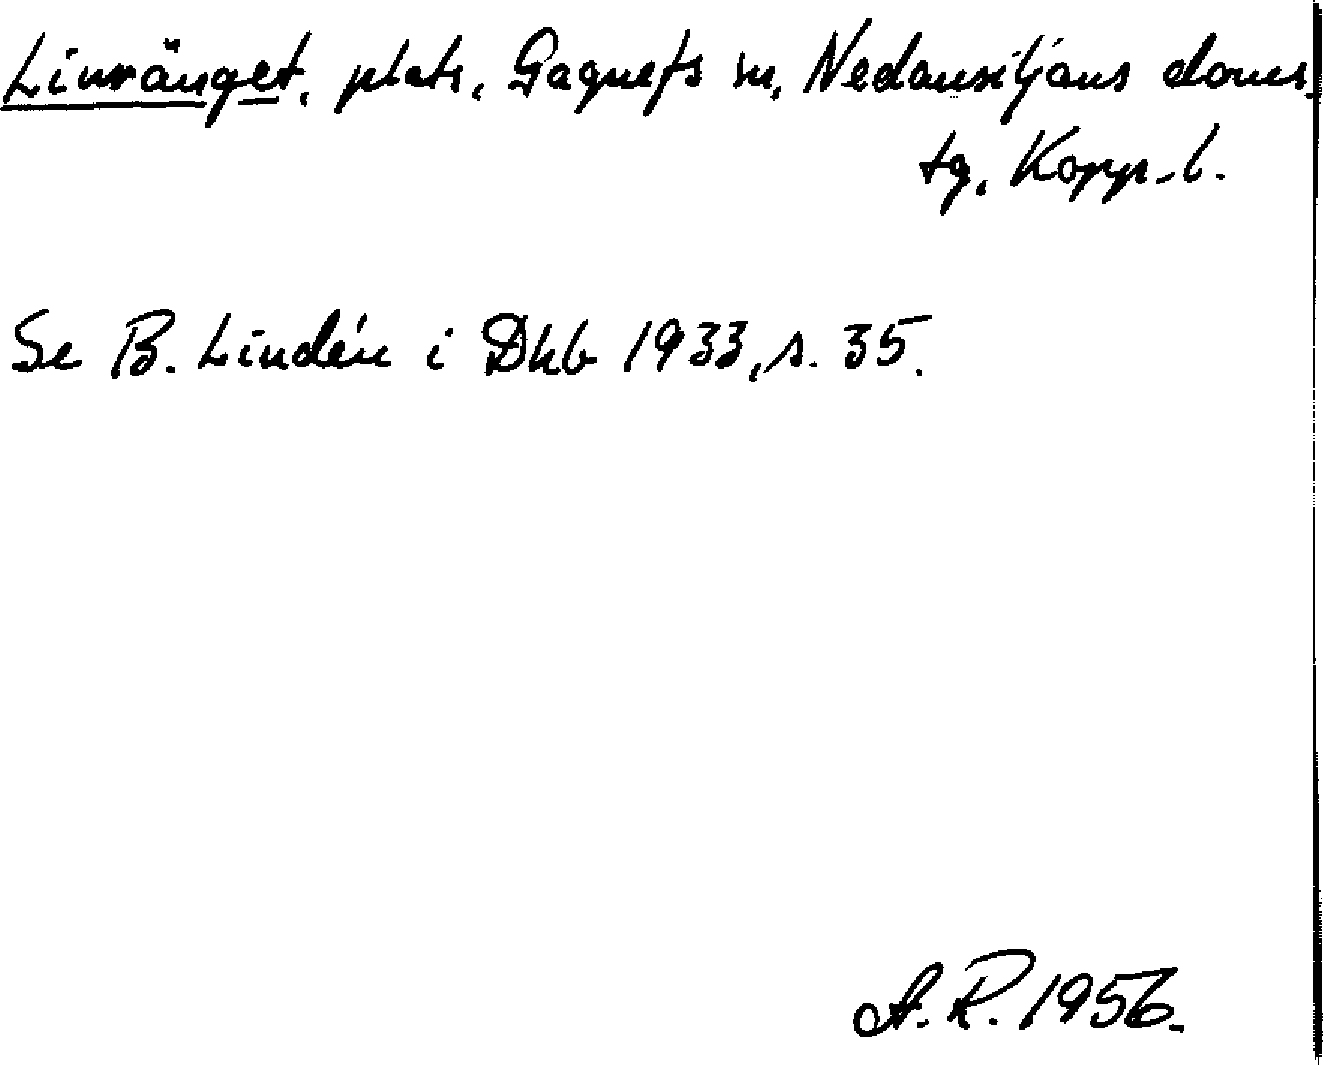 Linränget, plats, Gagnefs sn, Nedansiljans doms-
tg, Kopp.l.
Se B. Lindén i Dhb 1933, s. 35.
A.R. 1956.